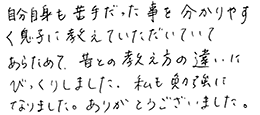 自分自身も苦手だった事を分かりやす
く息子に教えていただいていて
あらためて、昔との教え方の違いに
びっくりしました。私も勉強に
なりました。ありがとうございました。